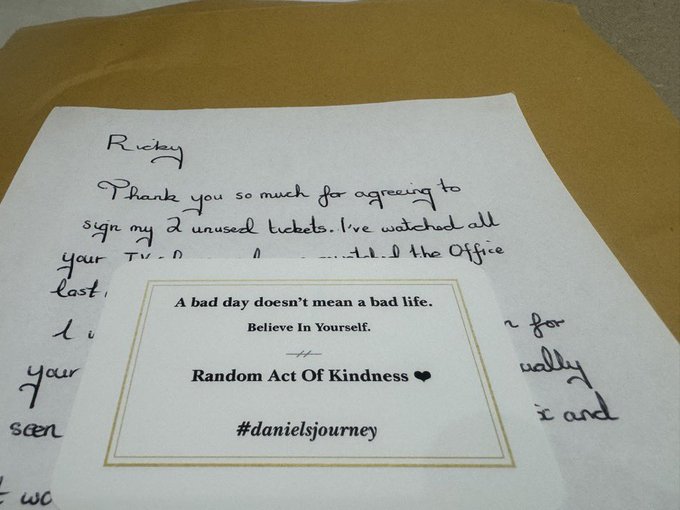 Ricky
Thank you so much for agreeing to
sign my 2 unused tickets. I've watched all
your the Office
last,
for
your ually
seen x and
A bad day doesn't mean a bad life.
Believe In Yourself.
Random Act Of Kindness ❤
#danielsjourney